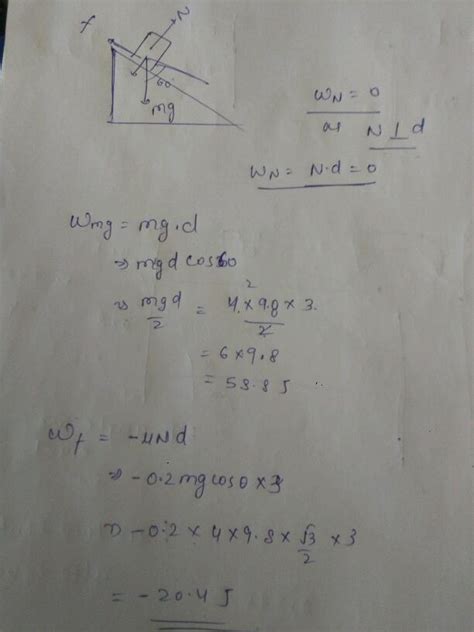 f
N
60
mg
W_N = 0
as N ⊥ d
W_N = N·d = 0
W_mg = mg·d
⇒ mgd cos60
⇒ mgd/2 = 4 × 9.8 × 3 / 2
= 6 × 9.8
= 58.8 J
W_f = -μNd
⇒ -0.2 mg cosθ × 3
⇒ -0.2 × 4 × 9.8 × √3/2 × 3
= -20.4 J